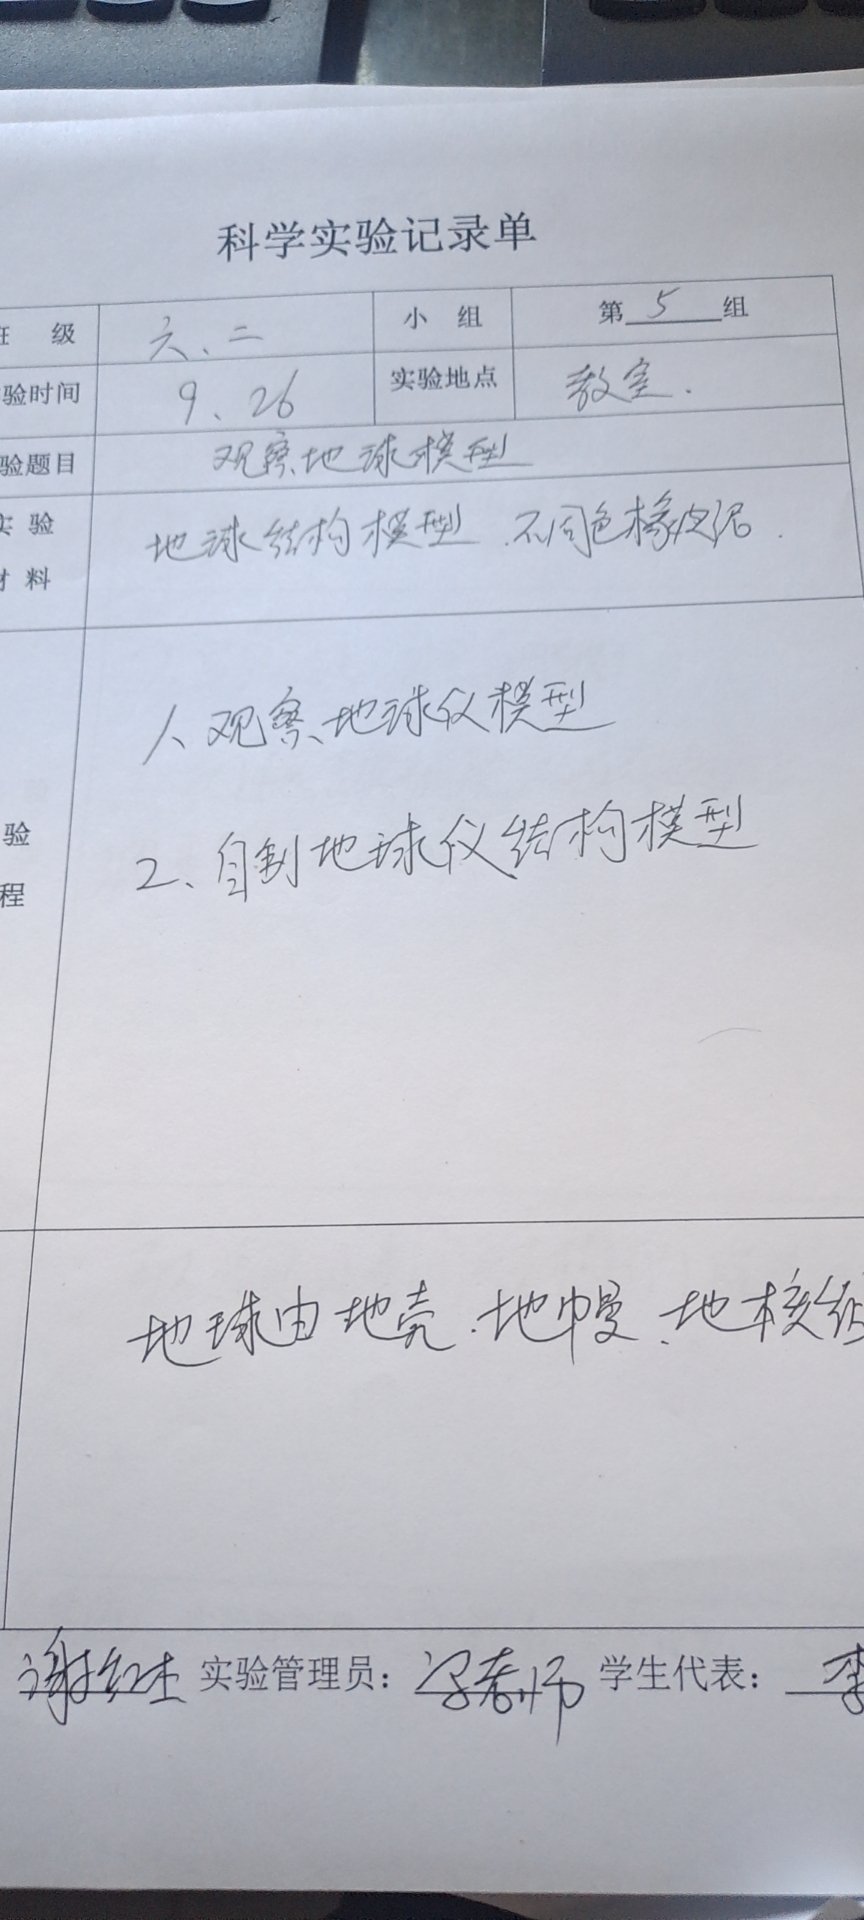 科学实验记录单
班 级 六、二 小 组 第 5 组
验时间 9、26 实验地点 教室.
验题目 观察地球模型
实 验 地球结构模型、不同色橡皮泥.
材 料
1、观察地球仪模型
2、自制地球仪结构模型
验
程
地球由地壳、地幔、地核组
实验管理员: 学生代表: 李